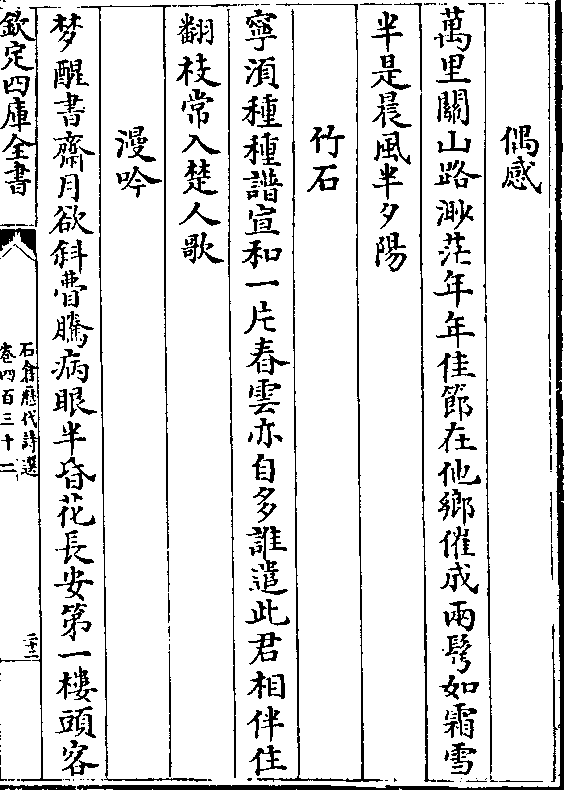 偶感
萬里關山路渺茫年年佳節在他鄉催成兩鬢如霜雪
半是晨風半夕陽
竹石
寧湏種種譜宣和一片春雲亦自多誰遣此君相伴住
翻枝常入楚人歌
漫吟
梦醒書齋月欲斜瞢騰病眼半昏花長安第一樓頭客
欽定四庫全書
石倉歷代詩選
卷四百三十二
二十二